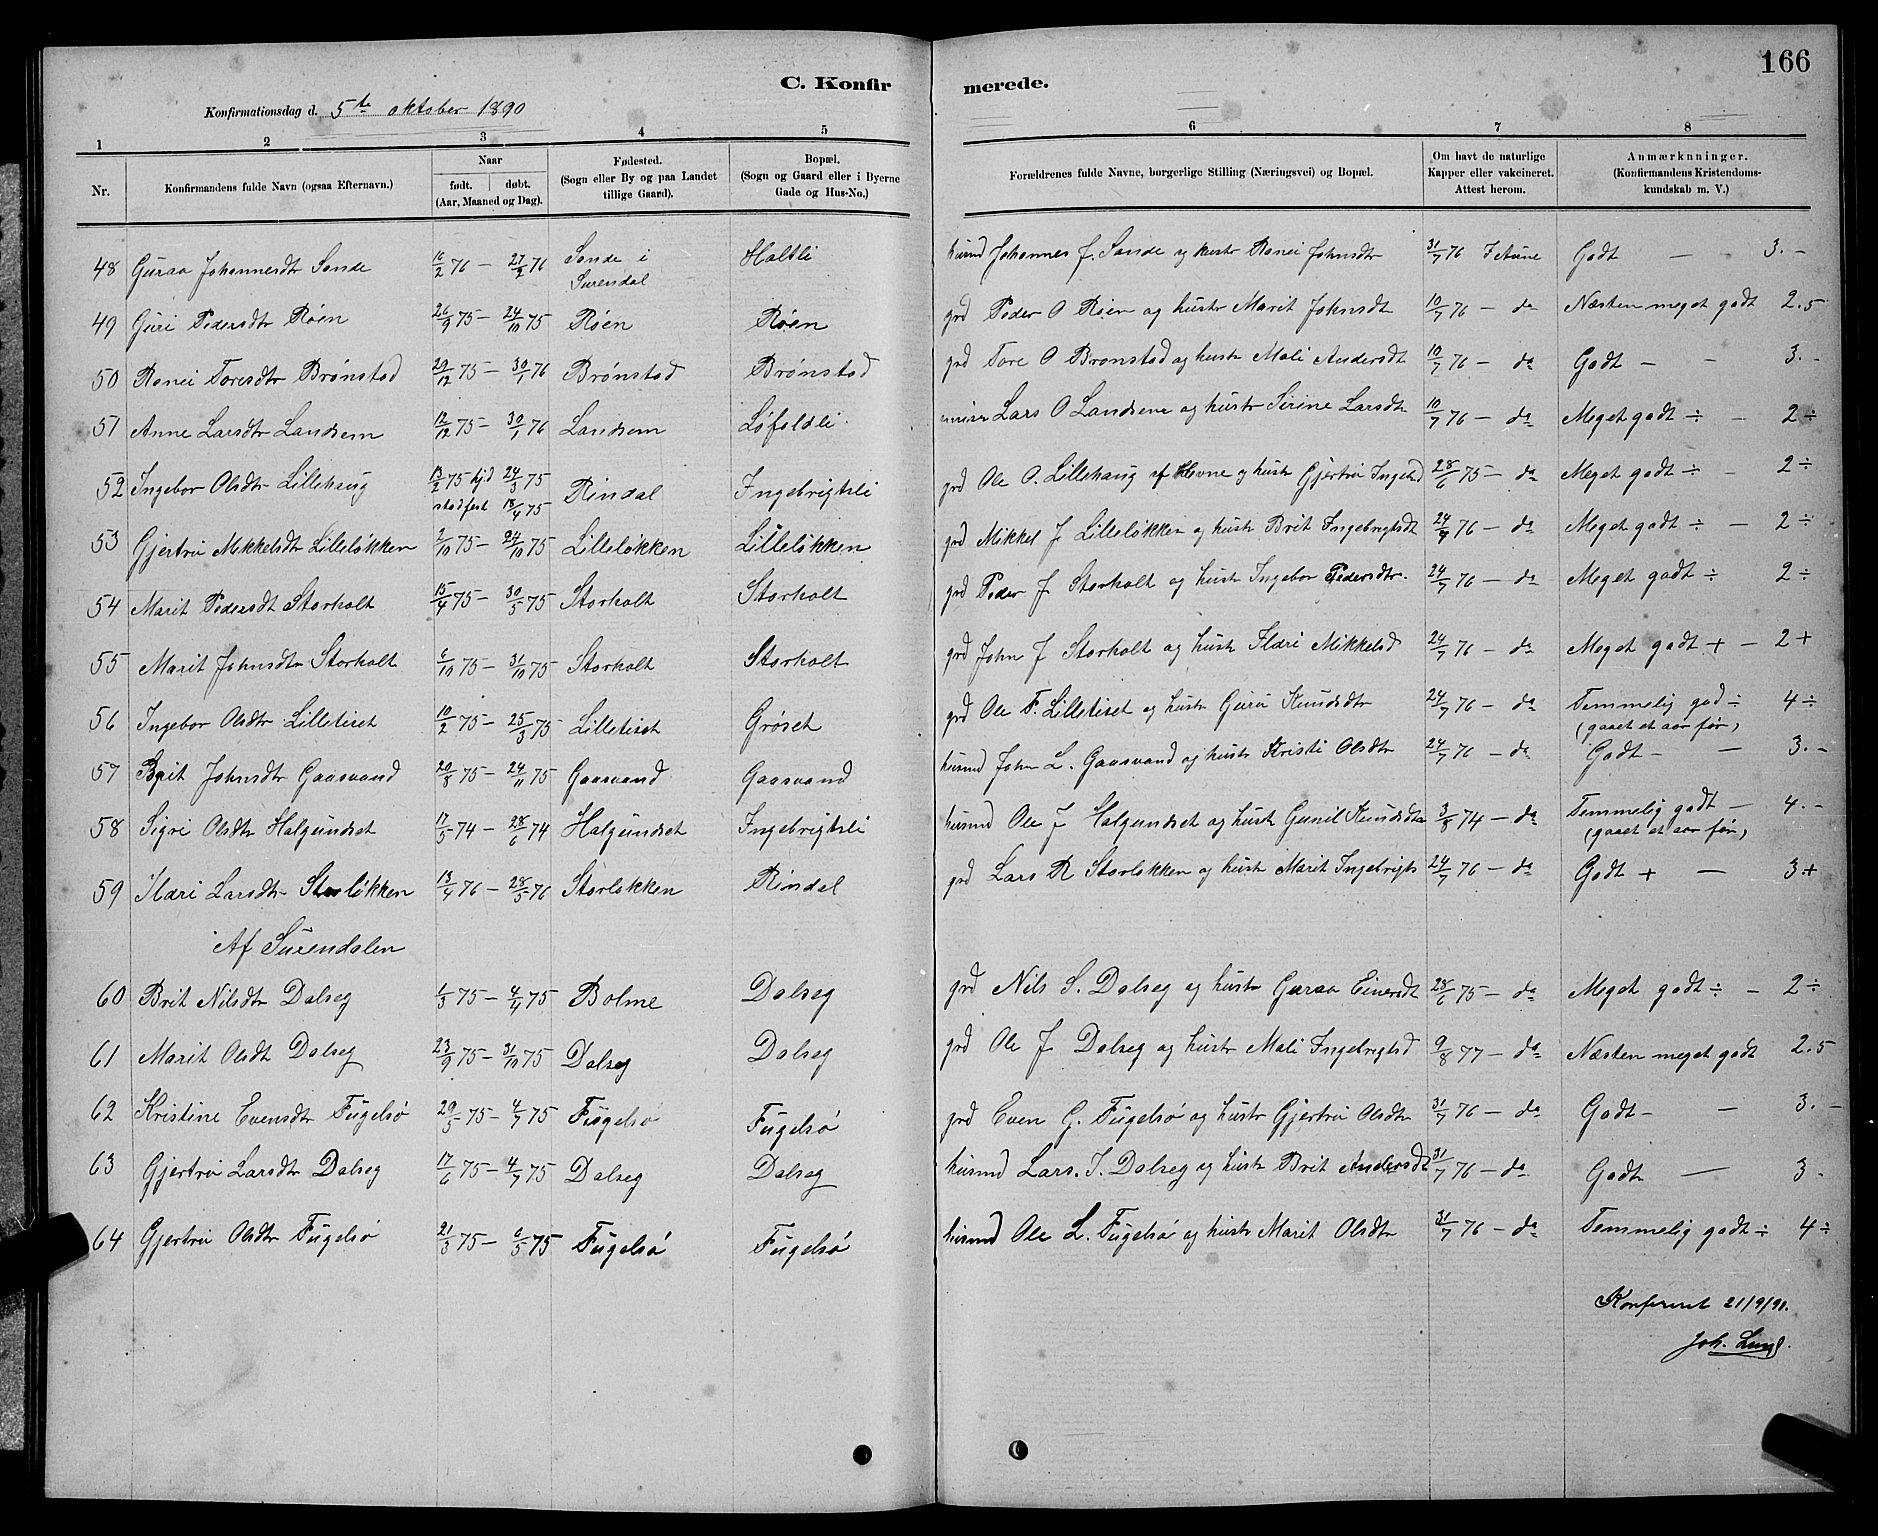 166
C. Konfirmerede.
Konfirmationsdag d. 5te oktober 1890
1 2 3 4 5 6 7 8
Nr. Konfirmandens fulde Navn (ogsaa Efternavn.) Naar født. døbt. (Aar, Maaned og Dag). Fødested. (Sogn eller By og paa Landet tillige Gaard). Bopæl. (Sogn og Gaard eller i Byerne Gade og Hus-No.) Forældrenes fulde Navne, borgerlige Stilling (Næringsvei) og Bopæl. Om havt de naturlige Kapper eller vakcineret. Attest herom. Anmærknninger. (Konfirmandens Kristendomskundskab m. V.)
48 Guraa Johannesdtr Sande 16/2 76 — 27/2 76 Sande i Surendal Holtli husmd Johannes J. Sande og hustr Ranei Johnsdtr 31/7 76 Godt — 3. -
49 Guri Pedersdtr Røen 26/9 75 — 24/10 75 Røen Røen grd Peder O Røen og hustr Marit Johnsdt 10/7 76 — do Næsten meget godt 2.5
50 Ranei Toresdtr Brønstad 29/12 75 — 30/1 76 Brønstad Brønstad grd Tore O Brønstad og hustr Mali Andersdt 10/7 76 — do Godt — - 3. -
51 Anne Larsdtr Landsem 12/12 75 — 30/1 76 Landsem Løfaldli Lars O Landsem og hustr Sirine Larsdtr 10/7 76 — do Meget godt ÷ - 2 ÷
52 Ingebor Olsdtr Lillehaug 13/2 75 hjd 24/3 75 stadfest 18/4 75 Rindal Ingebrigtsli grd Ole O. Lillehaug af Hevne og hustr Gjertru Ingebd 28/6 75 — do Meget godt ÷ - 2 ÷
53 Gjertru Mikkelsdtr Lilleløkken 2/10 75 — 24/10 75 Lilleløkken Lilleløkken grd Mikkel J Lilleløkken og hustr Brit Ingebrigtsdt 24/7 76 — do Meget godt ÷ — 2 ÷
54 Marit Pedersdt Storholt 15/4 75 — 30/5 75 Storholt Storholt grd Peder J Storholt og hustr Ingebor Pedersdtr. 24/7 76 — do Meget godt ÷ 2 ÷
55 Marit Johnsdtr Storholt 6/10 75 — 31/10 75 Storholt Storholt grd John J Storholt og hustr Ildri Mikkelsd 24/7 76 — do Meget godt + — 2 +
56 Ingebor Olsdtr Lilletiset 10/2 75 — 25/3 75 Lilletiset Grøset grd Ole F. Lilletiset og hustr Guru Knudsdtr 24/7 76 — do Temmelig god ÷ 4 ÷ (gaaet et aar før)
57 Brit Johnsdtr Gaasvand 20/8 75 — 24/11 75 Gaasvand Gaasvand husmd John L. Gaasvand og hustr Kristi Olsdtr 24/7 76 — do Godt — - 3. -
58 Sigri Olsdtr Halgundset 17/5 74 — 28/6 74 Halgundset Ingebrigtsli husmd Ole J Halgundset og hustr Gunil Knudsdtr 3/8 74 — do Temmelig godt — 4. - (gaaet et aar før)
59 Ildri Larsdtr Storløkken 13/4 76 — 28/5 76 Storløkken Rindal grd Lars R Storløkken og hustr Marit Ingebrigts 24/7 76 — do Godt + — 3 +
Af Surendalen
60 Brit Nilsdtr Dalseg 1/3 75 — 4/4 75 Bolme Dalseg grd Nils S. Dalseg og hustr Guraa Einersdt 28/6 75 — do Meget godt ÷ - 2 ÷
61 Marit Olsdt Dalseg 23/9 75 — 31/10 75 Dalseg Dalseg grd Ole J Dalseg og hustr Mali Ingebrigtsd 9/8 77 — do Næsten meget godt 2.5
62 Kristine Evensdtr Fugelsø 29/5 75 — 4/7 75 Fugelsø Fugelsø grd Even G. Fugelsø og hustr Gjertru Olsdtr 31/7 76 — do Godt — - 3. -
63 Gjertru Larsdtr Dalseg 17/6 75 — 4/7 75 Dalseg Dalseg husmd Lars. I. Dalseg og hustr Brit Andersdt 31/7 76 — do Godt — 3 -
64 Gjertru Olsdtr Fugelsø 21/3 75 — 6/5 75 Fugelsø Fugelsø husmd Ole L. Fugelsø og hustr Marit Olsdtr 31/7 76 — do Temmelig godt ÷ 4 ÷
Konfereret 21/9/91.
Joh. Lund.